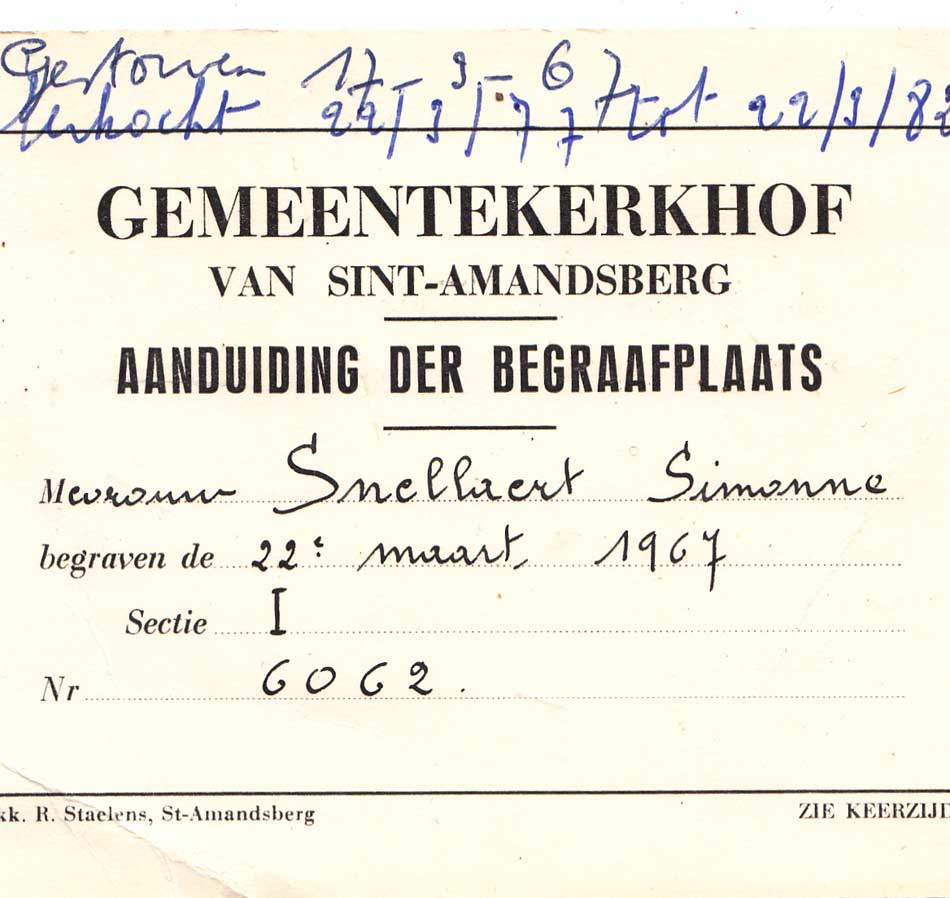 Gestorven 17-3-67
Verkocht 22/3/77 tot 22/3/82
GEMEENTEKERKHOF
VAN SINT-AMANDSBERG
AANDUIDING DER BEGRAAFPLAATS
Mevrouw Snellaert Simonne
begraven de 22e maart 1967
Sectie I
Nr 6062.
kk. R. Staelens, St-Amandsberg
ZIE KEERZIJD